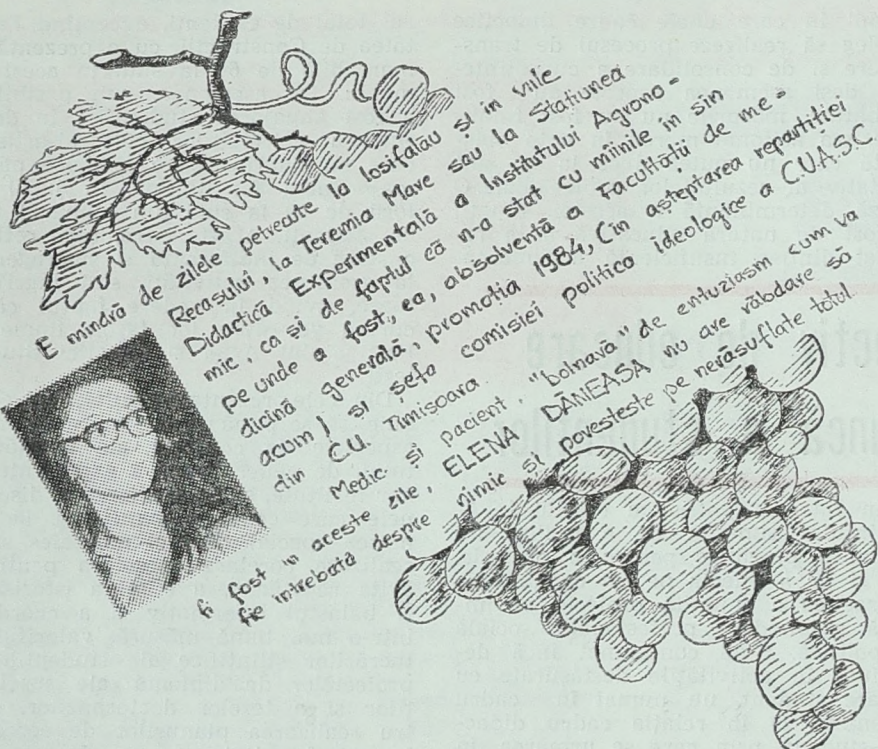 E mîndră de zilele petrecute la Iosifalău și în viile
Recasului, la Teremia Mare sau la Stațiunea
Didactică Experimentală a Institutului Agrono-
mic, ca și de faptul că n-a stat cu mîinile în sîn
pe unde a fost, ea, absolventă a Facultății de me-
dicină generală, promoția 1984, (în așteptarea repartiției
acum) și șefa comisiei politico ideologice a C.U.A.S.C.
din C.U. Timișoara.
Medic și pacient, "bolnavă" de entuziasm cum va
fi fost în aceste zile, ELENA DĂNEASA nu are răbdare să
fie întrebată despre nimic și povestește pe nerăsuflate totul.